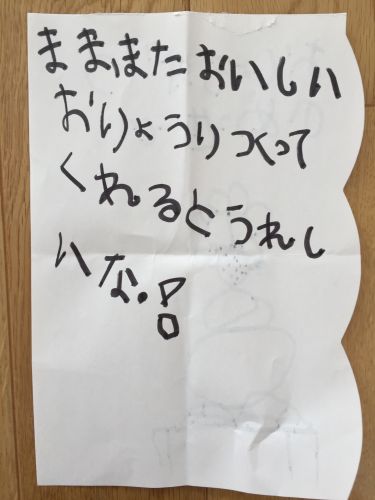 まま, またおいしい
おりょうりつくって
くれるとうれし
いな。!